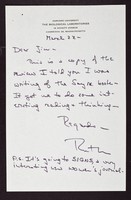 HARVARD UNIVERSITY
THE BIOLOGICAL LABORATORIES
March 22 -
Dear Jim -
This is a copy of the
review I told you I was
writing of the Sayre book -
It got me to do some int-
eresting thinking -
Regards -
Ruth
P.S. It's going to SIGNS, a very
interesting new women's journal.